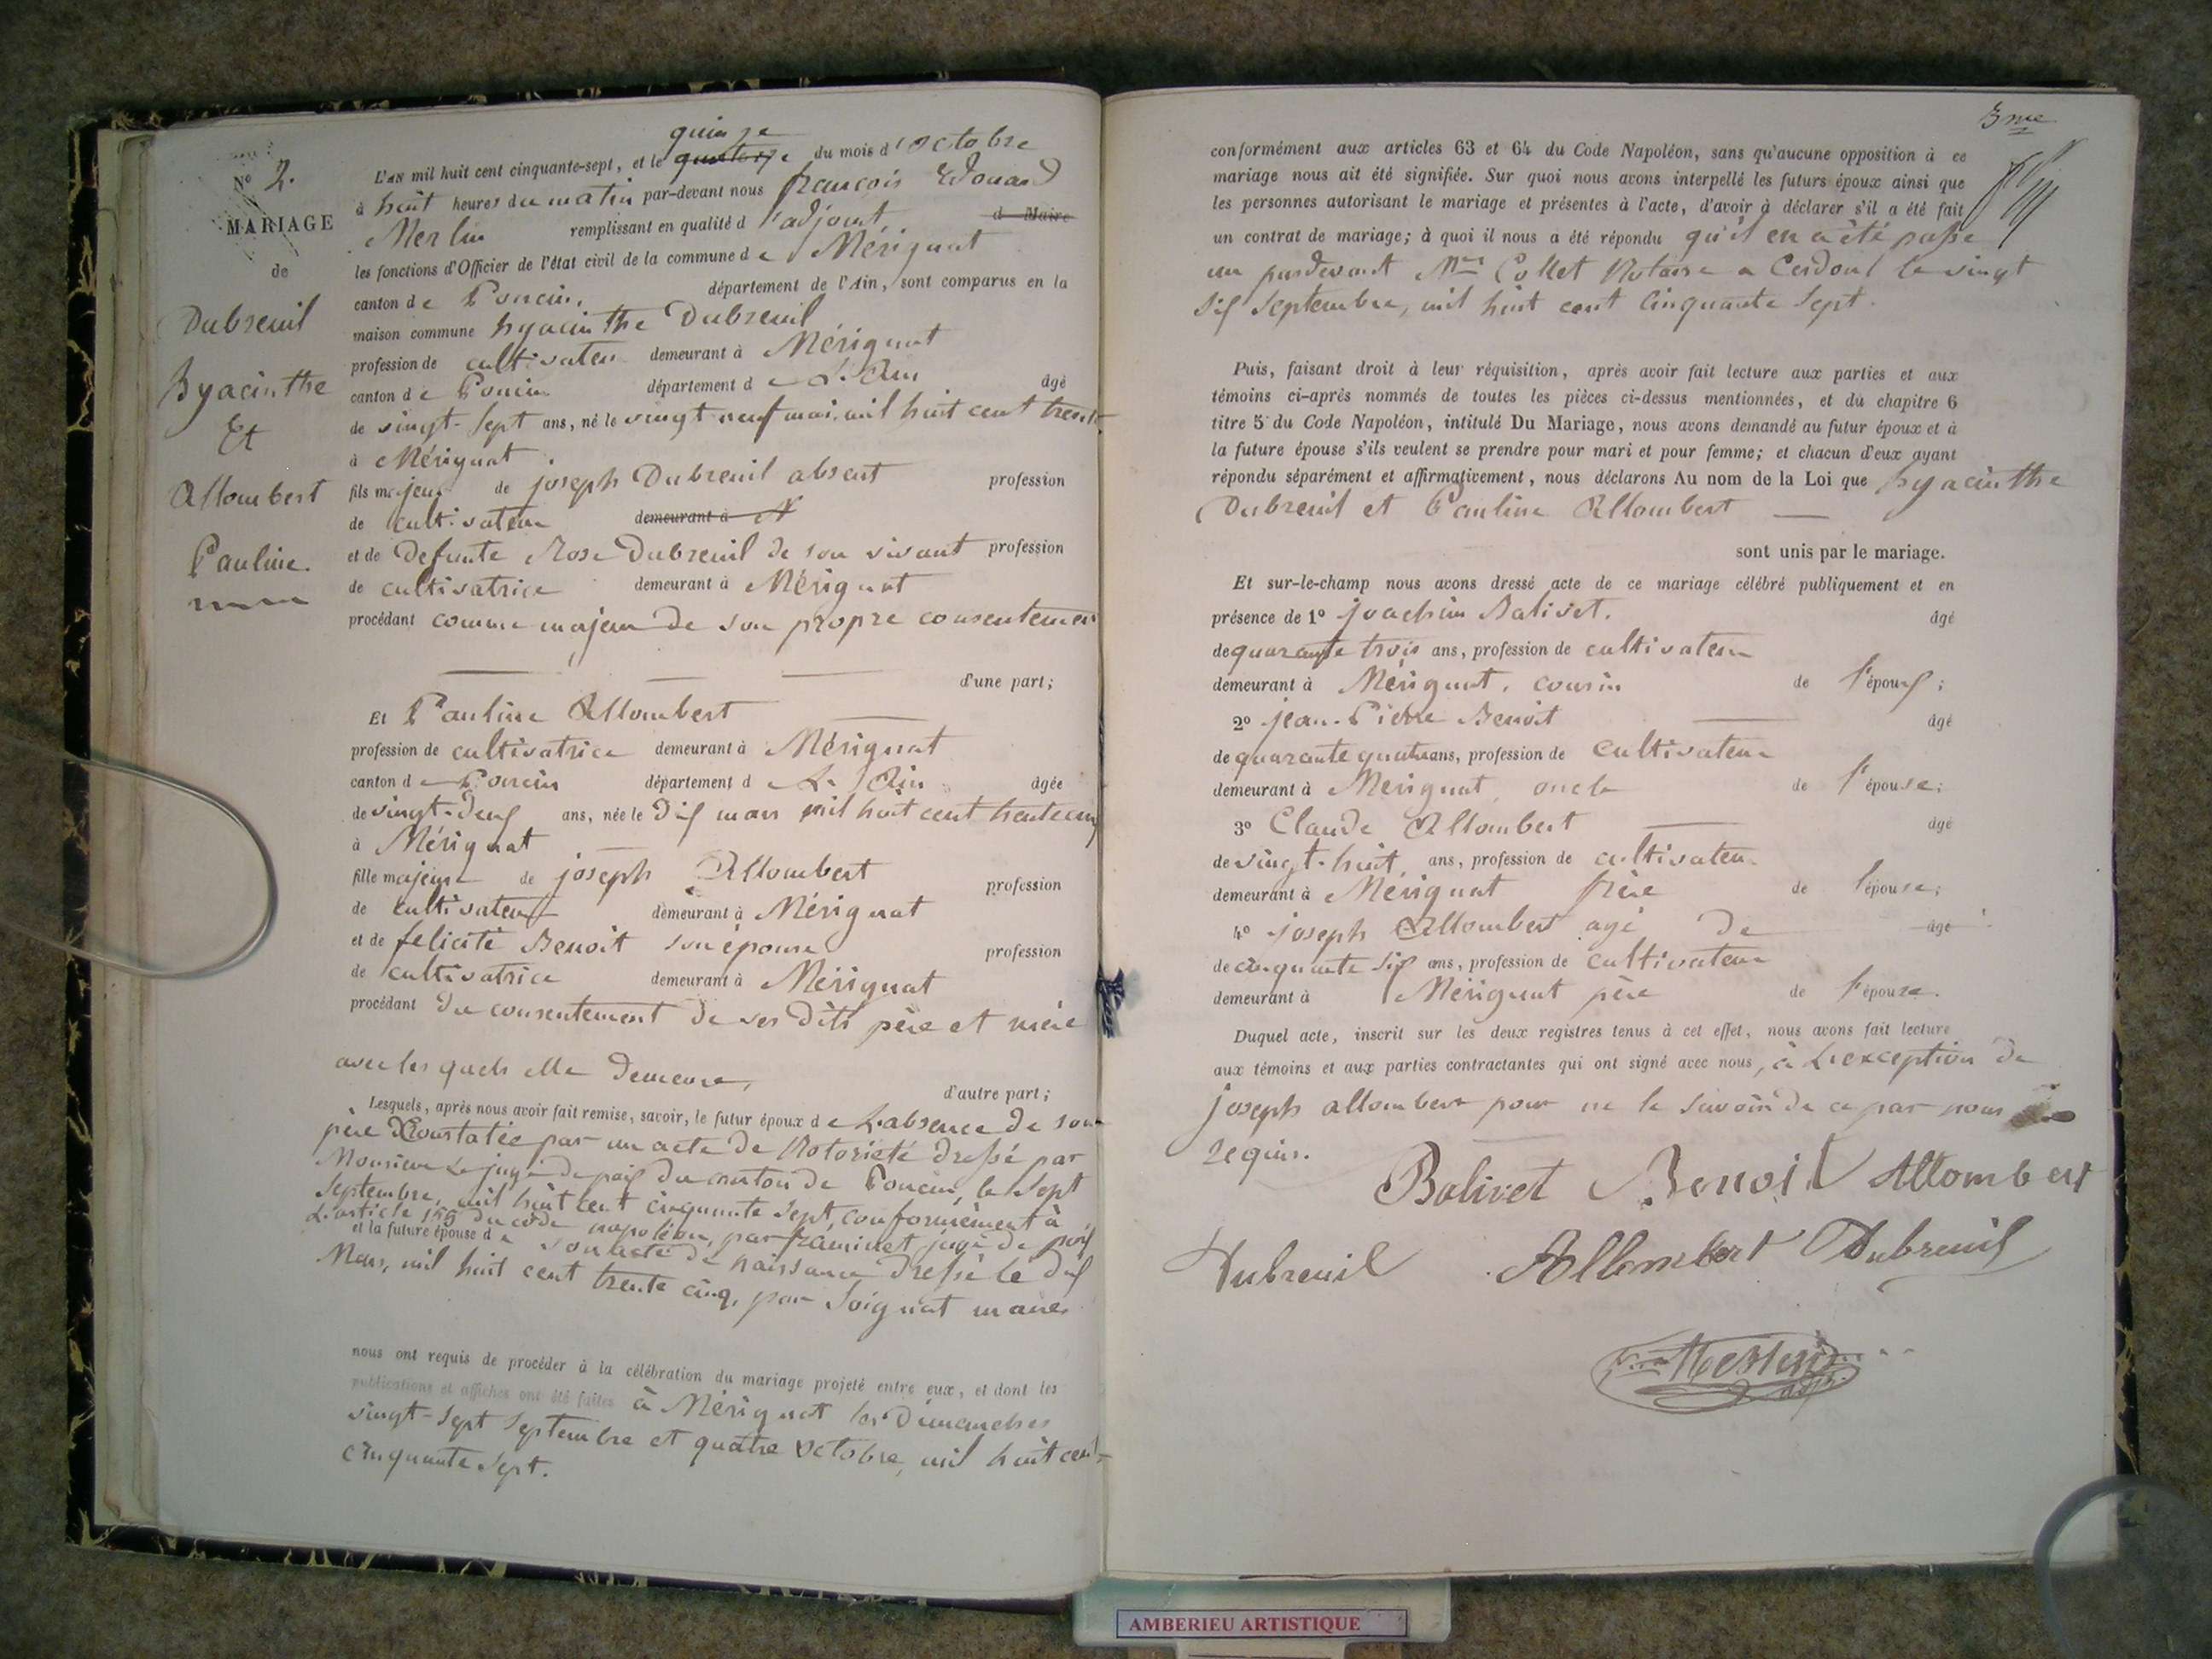 N° 2.
MARIAGE
de
Dubreuil
hyacinthe
Et
Allombert
Pauline.
quinze
L'an mil huit cent cinquante-sept, et le quatorze du mois d'octobre
à huit heures du matin par-devant nous françois Edouard
Merlin remplissant en qualité d'adjoint d Maire
les fonctions d'Officier de l'état civil de la commune de Mérignat
canton de Poncin, département de l'Ain, sont comparus en la
maison commune hyacinthe Dubreuil
profession de cultivateur demeurant à Mérignat
canton de Poncin département de L'Ain âgé
de vingt-sept ans, né le vingt neuf mai mil huit cent trente
à Mérignat
fils majeur de joseph Dubreuil absent profession
de cultivateur demeurant à
et de Defunte Rose Dubreuil de son vivant profession
de cultivatrice demeurant à Mérignat
procédant comme majeur de son propre consentement
d'une part;
Et Pauline Allombert
profession de cultivatrice demeurant à Mérignat
canton de Poncin département de L'Ain âgée
de vingt-deux ans, née le Dix mars mil huit cent trente cinq
à Mérignat
fille majeure de joseph Allombert profession
de cultivateur demeurant à Mérignat
et de felicité Benoit son épouse profession
de cultivatrice demeurant à Mérignat
procédant du consentement de ses dits père et mère
avec les quels elle demeure, d'autre part;
Lesquels, après nous avoir fait remise, savoir, le futur époux de L'absence de son
père Constatée par un acte de Notoriété dressé par
Monsieur Le juge de paix du canton de Poncin, le sept
Septembre, mil huit cent cinquante sept, conformément à
L'article 155 du code napoléon, par juge de paix
et la future épouse de son acte de naissance dressé le dix
Mars, mil huit cent trente cinq, par Soignat maire.
nous ont requis de procéder à la célébration du mariage projeté entre eux, et dont les
publications et affiches ont été faites à Mérignat les Dimanches
vingt-sept Septembre et quatre octobre, mil huit cent
cinquante sept.
3me
conformément aux articles 63 et 64 du Code Napoléon, sans qu'aucune opposition à ce
mariage nous ait été signifiée. Sur quoi nous avons interpellé les futurs époux ainsi que
les personnes autorisant le mariage et présentes à l'acte, d'avoir à déclarer s'il a été fait
un contrat de mariage; à quoi il nous a été répondu qu'il en a été passé
un pardevant Me Collet Notaire a Cerdon le vingt
six Septembre, mil huit cent Cinquante Sept.
Puis, faisant droit à leur réquisition, après avoir fait lecture aux parties et aux
témoins ci-après nommés de toutes les pièces ci-dessus mentionnées, et du chapitre 6
titre 5 du Code Napoléon, intitulé Du Mariage, nous avons demandé au futur époux et à
la future épouse s'ils veulent se prendre pour mari et pour femme; et chacun d'eux ayant
répondu séparément et affirmativement, nous déclarons Au nom de la Loi que hyacinthe
Dubreuil et Pauline Allombert
sont unis par le mariage.
Et sur-le-champ nous avons dressé acte de ce mariage célébré publiquement et en
présence de 1° joachim Balivet. âgé
de quarante trois ans, profession de cultivateur
demeurant à Mérignat, cousin de l'époux;
2° jean-Pierre Benoit âgé
de quarante quatre ans, profession de cultivateur
demeurant à Mérignat oncle de l'épouse;
3° Claude Allombert âgé
de vingt-huit ans, profession de cultivateur
demeurant à Mérignat frère de l'épouse;
4° joseph Allombert agé de âgé
de cinquante six ans, profession de cultivateur
demeurant à Mérignat père de l'épouse.
Duquel acte, inscrit sur les deux registres tenus à cet effet, nous avons fait lecture
aux témoins et aux parties contractantes qui ont signé avec nous, à L'exception de
joseph allombert pour ne le savoir de ce par nous
requis.
Balivet Benoit Allombert
Dubreuil Allombert Dubreuil
Merlin
adj.
AMBERIEU ARTISTIQUE